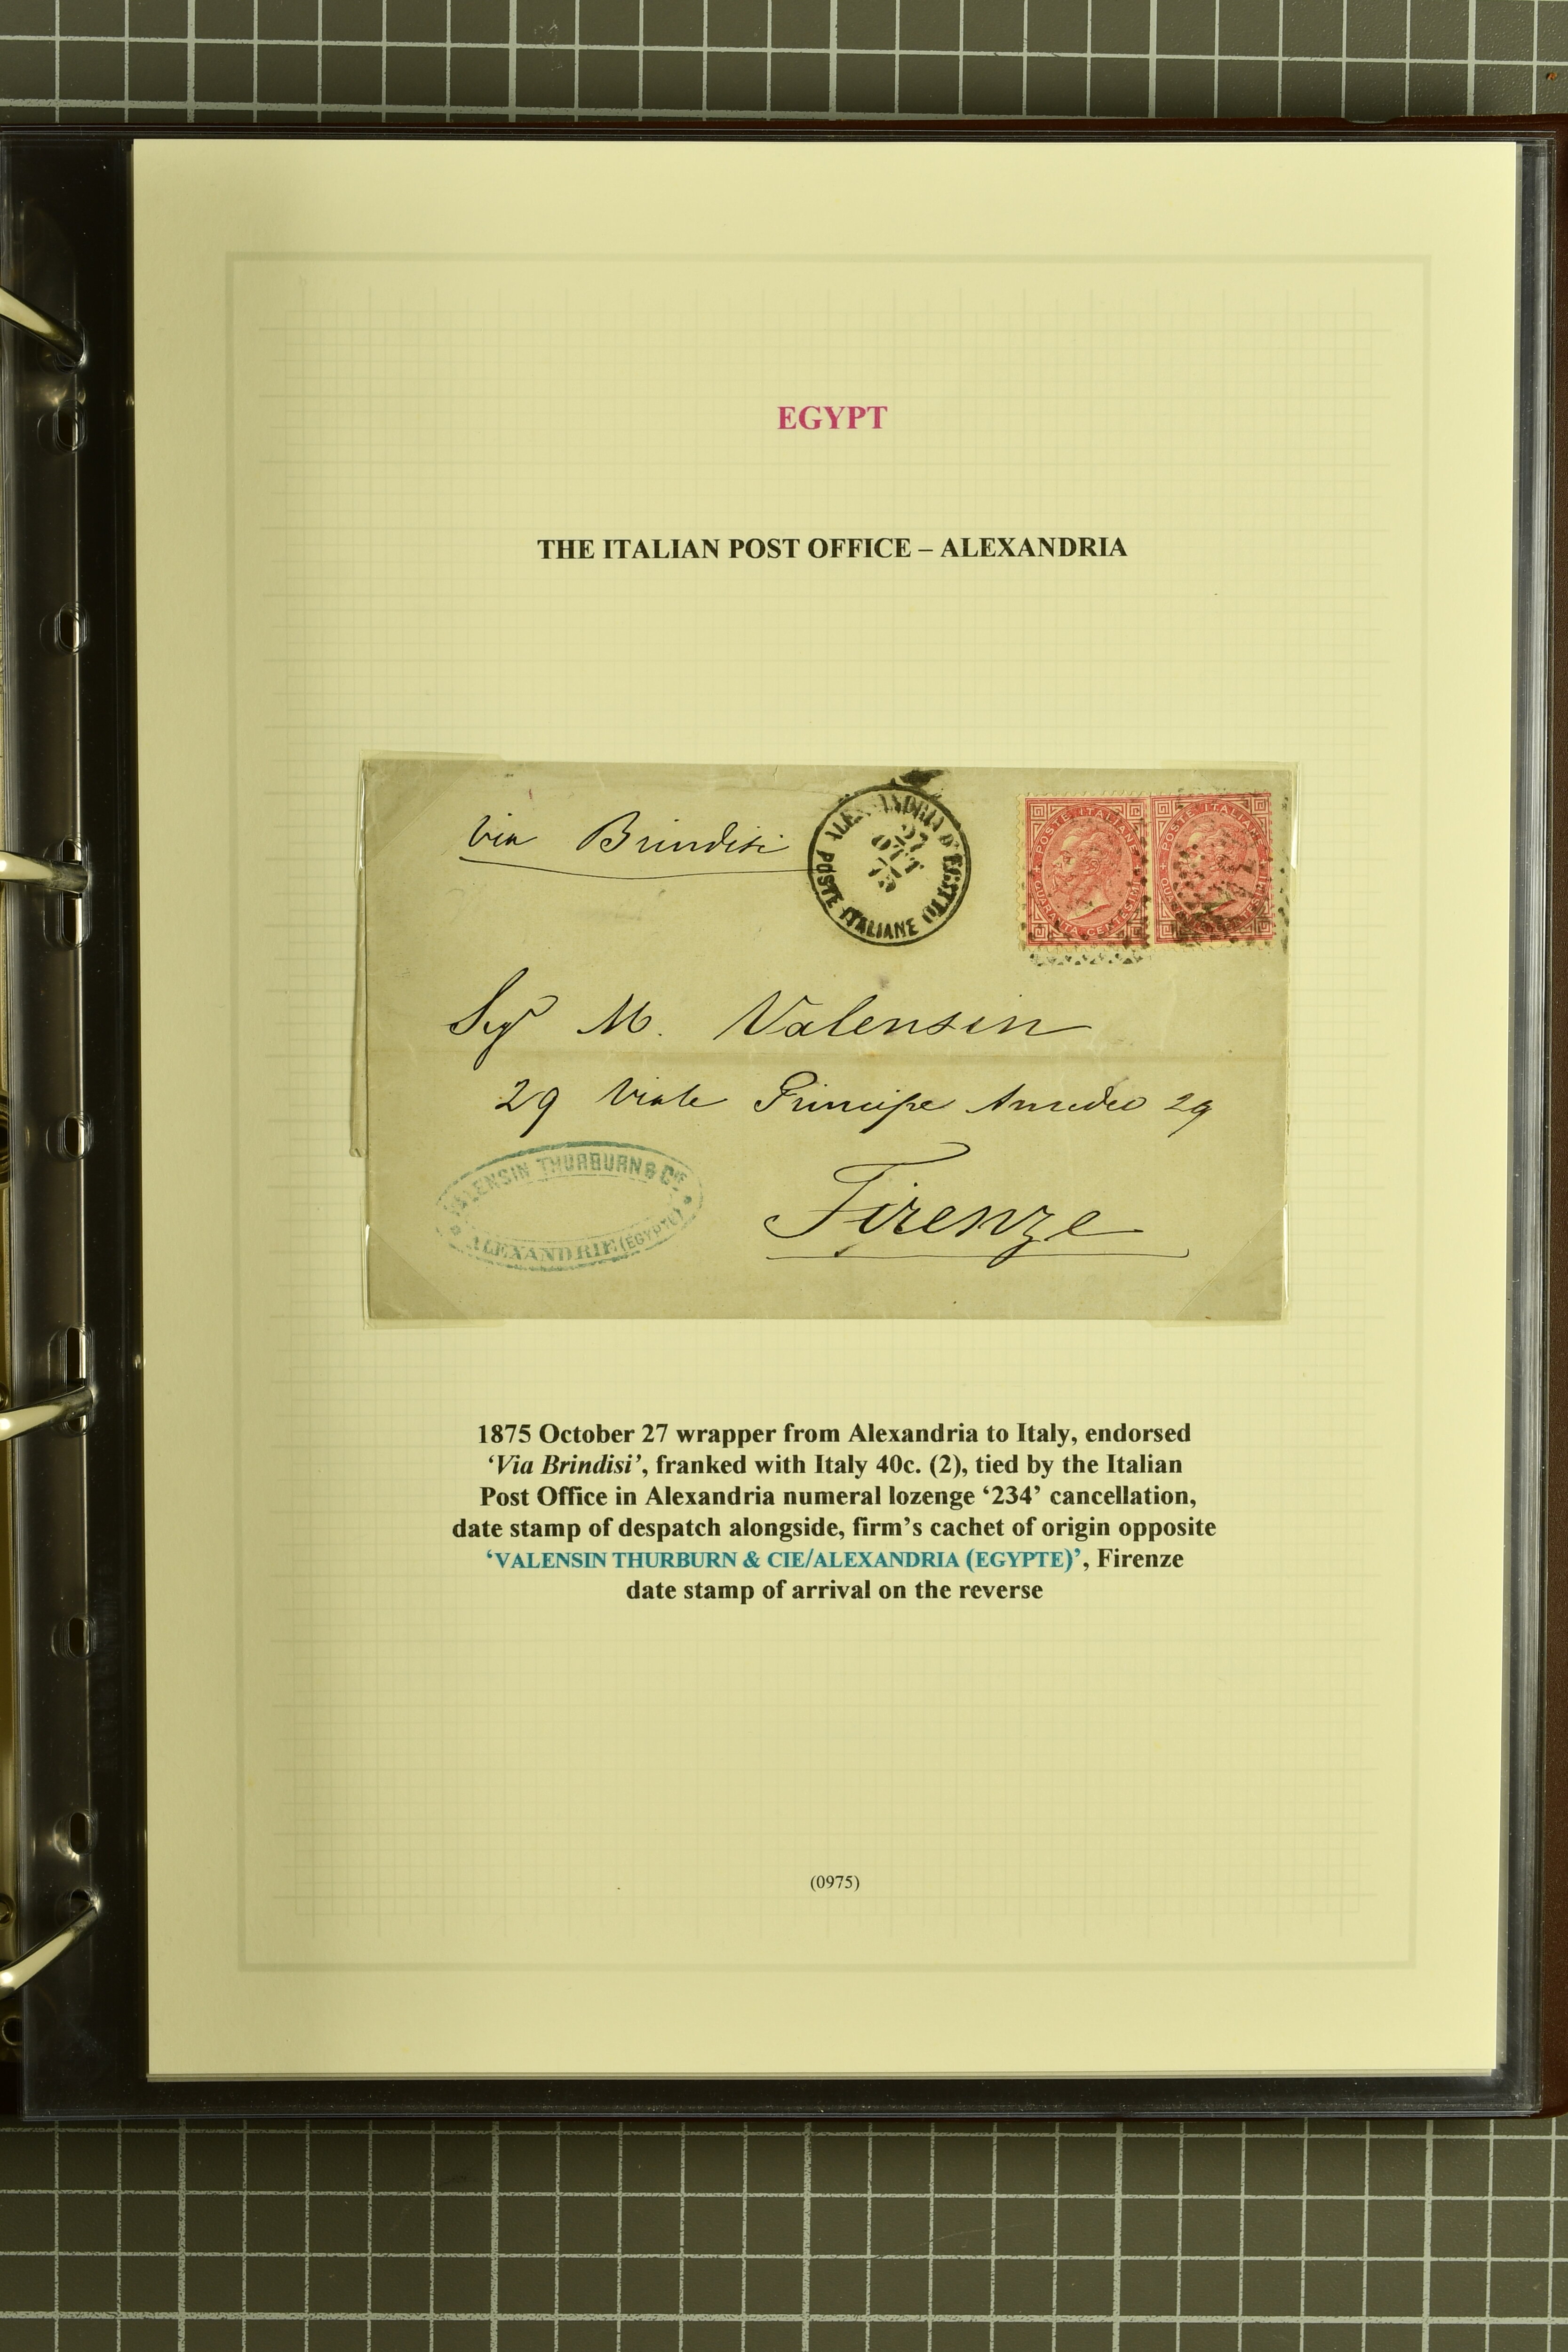 EGYPT
THE ITALIAN POST OFFICE – ALEXANDRIA
Via Brindisi
ALESSANDRIA D'EGITTO
27
OTT
75
POSTE ITALIANE
POSTE ITALIANE
QUARANTA CENTESIMI
POSTE ITALIANE
Sigr M. Valensin
29 Viale Principe Amedeo 29
Firenze
VALENSIN THURBURN & CIE
ALEXANDRIE (EGYPTE)
1875 October 27 wrapper from Alexandria to Italy, endorsed
‘Via Brindisi’, franked with Italy 40c. (2), tied by the Italian
Post Office in Alexandria numeral lozenge ‘234’ cancellation,
date stamp of despatch alongside, firm’s cachet of origin opposite
‘VALENSIN THURBURN & CIE/ALEXANDRIA (EGYPTE)’, Firenze
date stamp of arrival on the reverse
(0975)